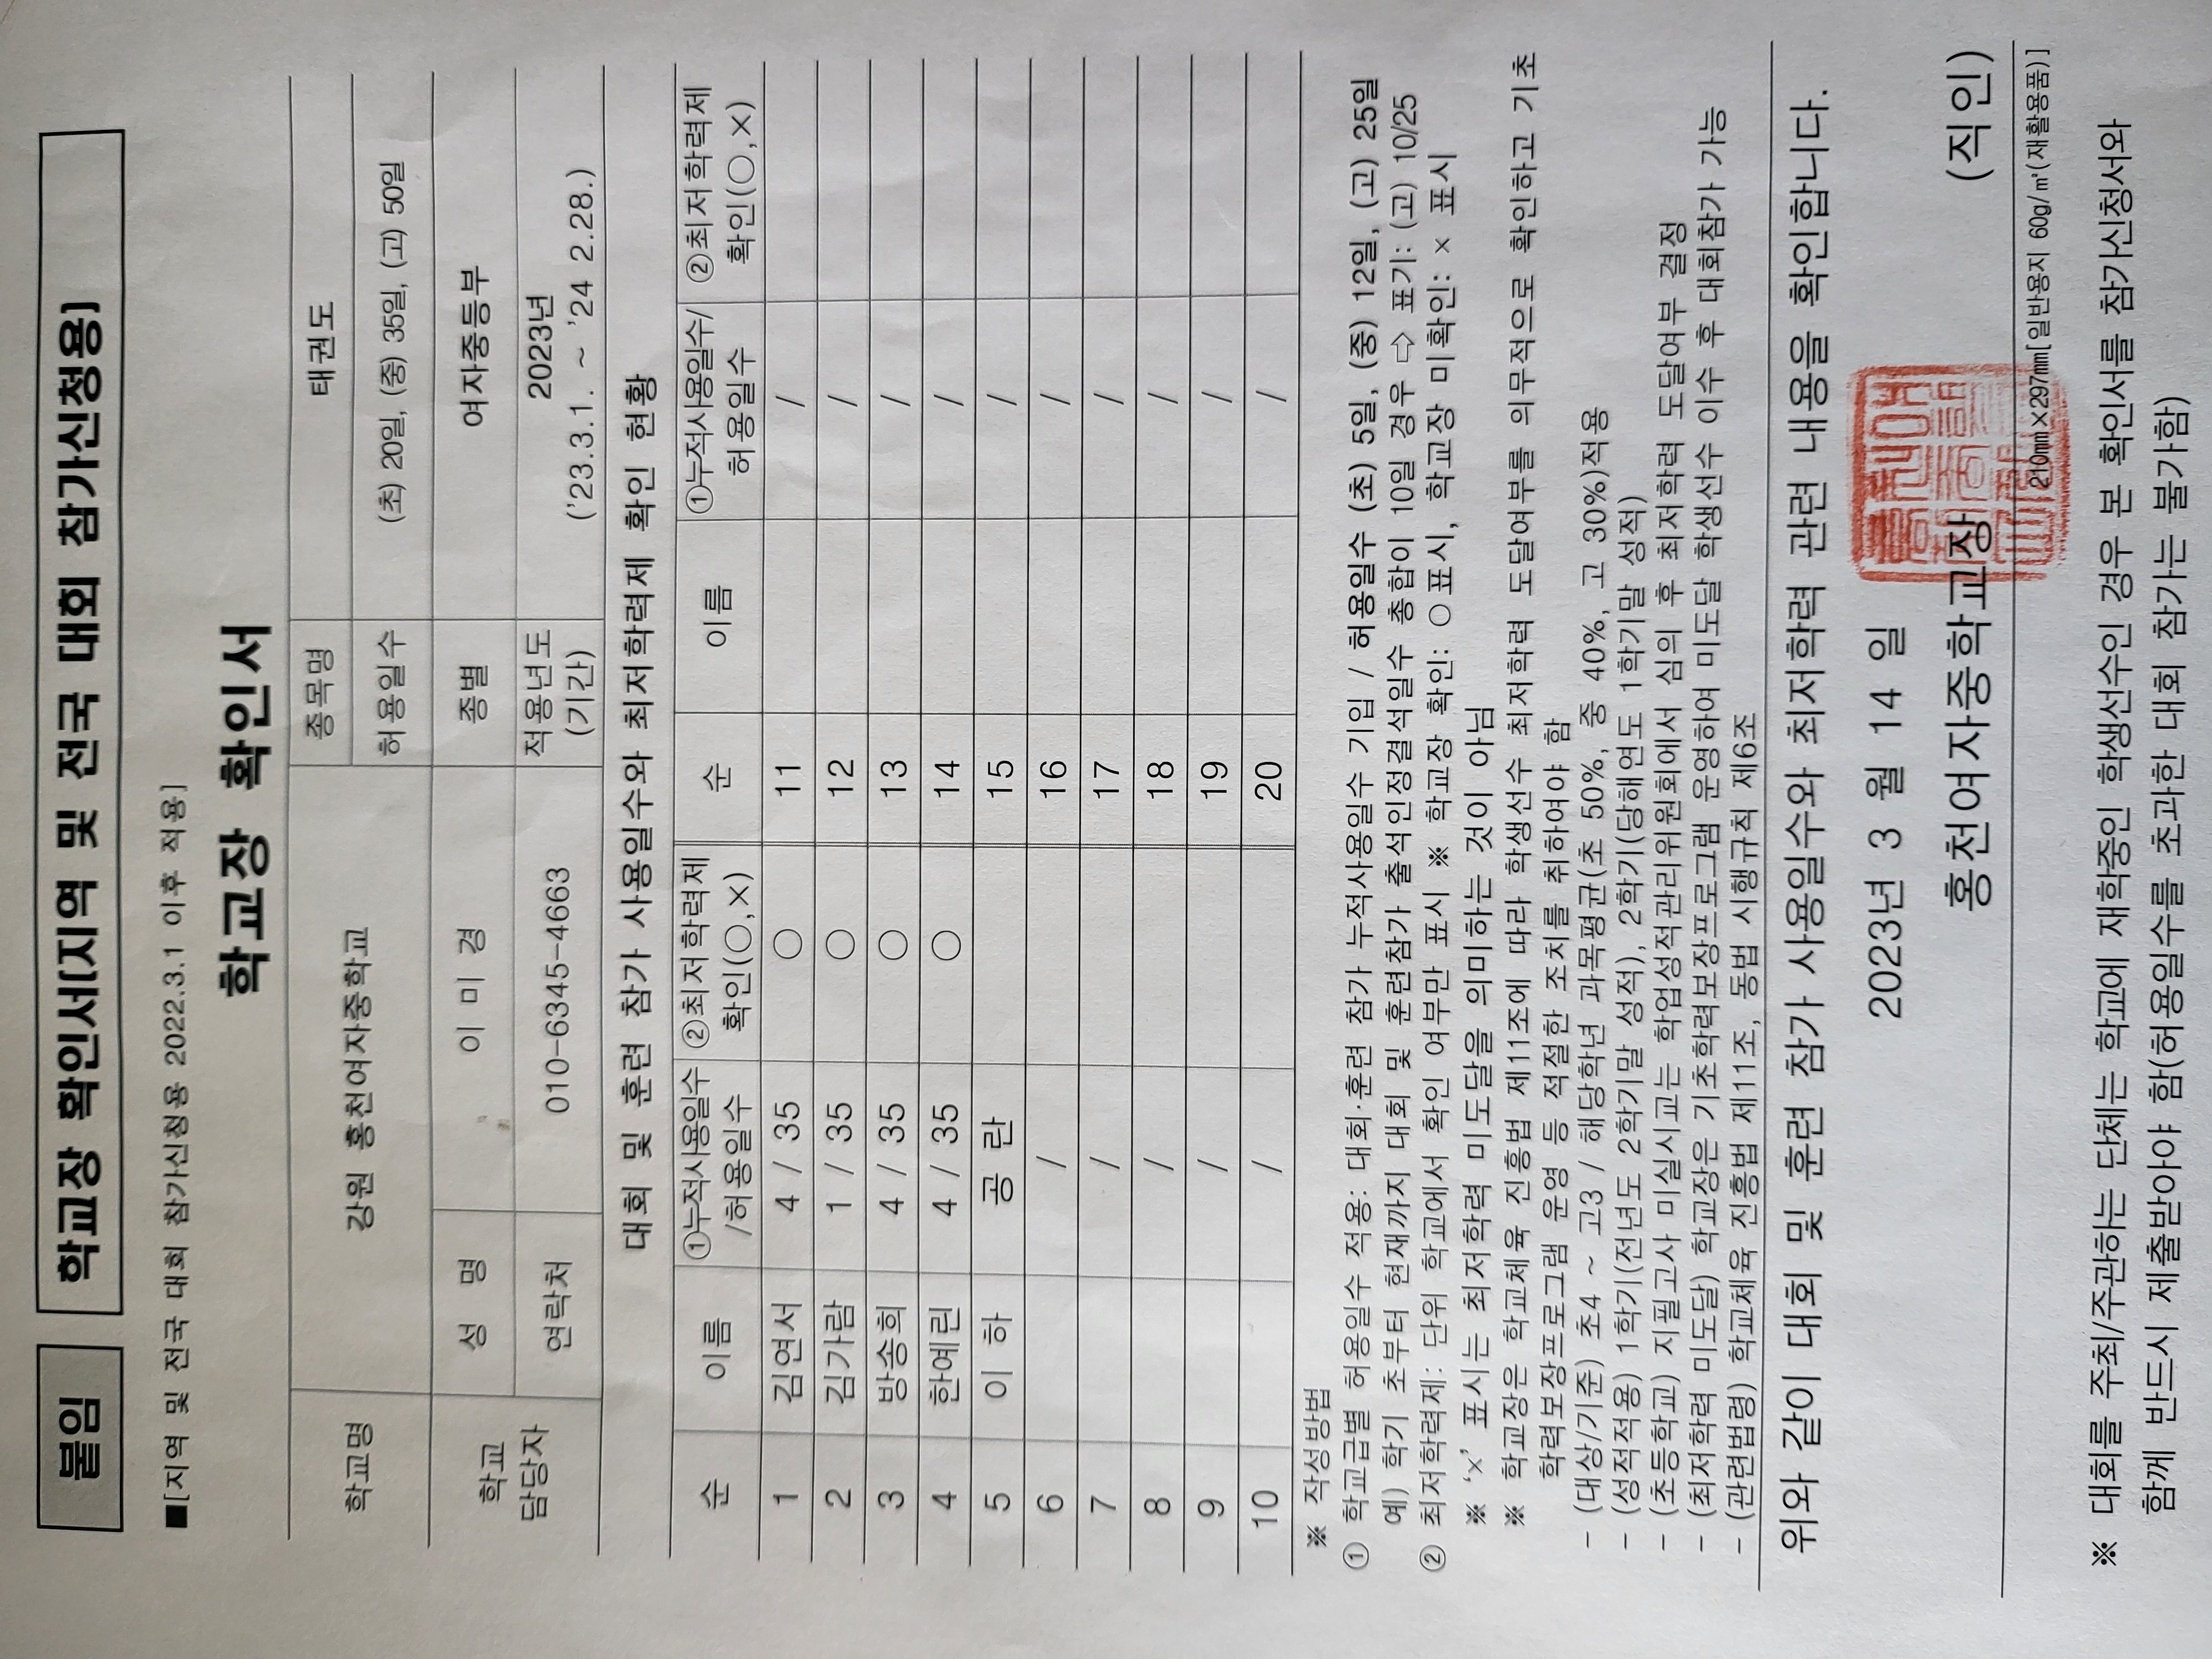 붙임
학교장 확인서(지역 및 전국 대회 참가신청용)
■[지역 및 전국 대회 참가신청용 2022.3.1 이후 적용]
학교장 확인서
학교명 강원 홍천여자중학교 종목명 태권도
허용일수 (초) 20일, (중) 35일, (고) 50일
학교 담당자 성 명 이 미 경 종별 여자중등부
연락처 010-6345-4663 적용년도 (기간) 2023년
('23.3.1. ~ '24 2.28.)
대회 및 훈련 참가 사용일수와 최저학력제 확인 현황
순 이름 ①누적사용일수 /허용일수 ②최저학력제 확인(○,×) 순 이름 ①누적사용일수/ 허용일수 ②최저학력제 확인(○,×)
1 김연서 4 / 35 ○ 11 /
2 김가람 1 / 35 ○ 12 /
3 방송희 4 / 35 ○ 13 /
4 한예린 4 / 35 ○ 14 /
5 이 하 공 란 15 /
6 / 16 /
7 / 17 /
8 / 18 /
9 / 19 /
10 / 20 /
※ 작성방법
① 학교급별 허용일수 적용: 대회·훈련 참가 누적사용일수 기입 / 허용일수 (초) 5일, (중) 12일, (고) 25일
예) 학기 초부터 현재까지 대회 및 훈련참가 출석인정결석일수 총합이 10일 경우 ⇨ 표기: (고) 10/25
② 최저학력제: 단위 학교에서 확인 여부만 표시 ※ 학교장 확인: ○ 표시, 학교장 미확인: × 표시
※ ‘×’ 표시는 최저학력 미도달을 의미하는 것이 아님
※ 학교장은 학교체육 진흥법 제11조에 따라 학생선수 최저학력 도달여부를 의무적으로 확인하고 기초
학력보장프로그램 운영 등 적절한 조치를 취하여야 함
- (대상/기준) 초4 ~ 고3 / 해당학년 과목평균(초 50%, 중 40%, 고 30%)적용
- (성적적용) 1학기(전년도 2학기말 성적), 2학기(당해연도 1학기말 성적)
- (초등학교) 지필고사 미실시교는 학업성적관리위원회에서 심의 후 최저학력 도달여부 결정
- (최저학력 미도달) 학교장은 기초학력보장프로그램 운영하여 미도달 학생선수 이수 후 대회참가 가능
- (관련법령) 학교체육 진흥법 제11조, 동법 시행규칙 제6조
위와 같이 대회 및 훈련 참가 사용일수와 최저학력 관련 내용을 확인합니다.
2023년 3 월 14 일
홍천여자중학교장 (직인)
210㎜×297㎜[일반용지 60g/㎡(재활용품)]
※ 대회를 주최/주관하는 단체는 학교에 재학중인 학생선수인 경우 본 확인서를 참가신청서와
함께 반드시 제출받아야 함(허용일수를 초과한 대회 참가는 불가함)